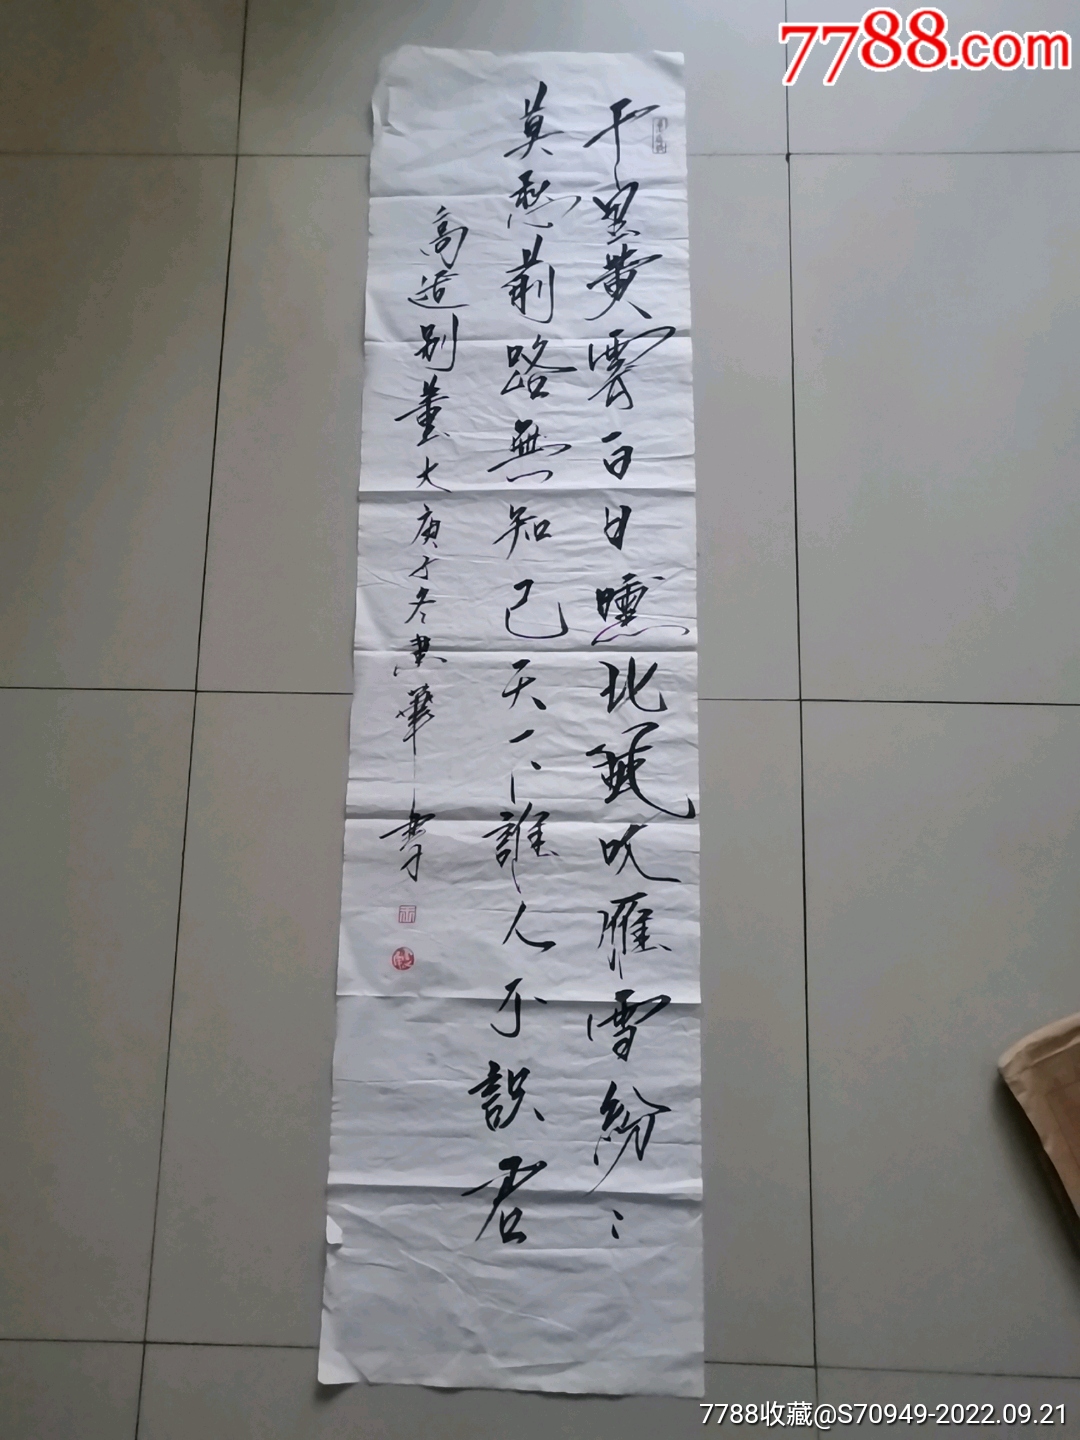 7788.com
千里黄雲百日曛北風吹雁雪紛〻
莫愁前路無知己天下誰人不識君
高适别董大庚子冬華書
7788收藏@S70949-2022.09.21